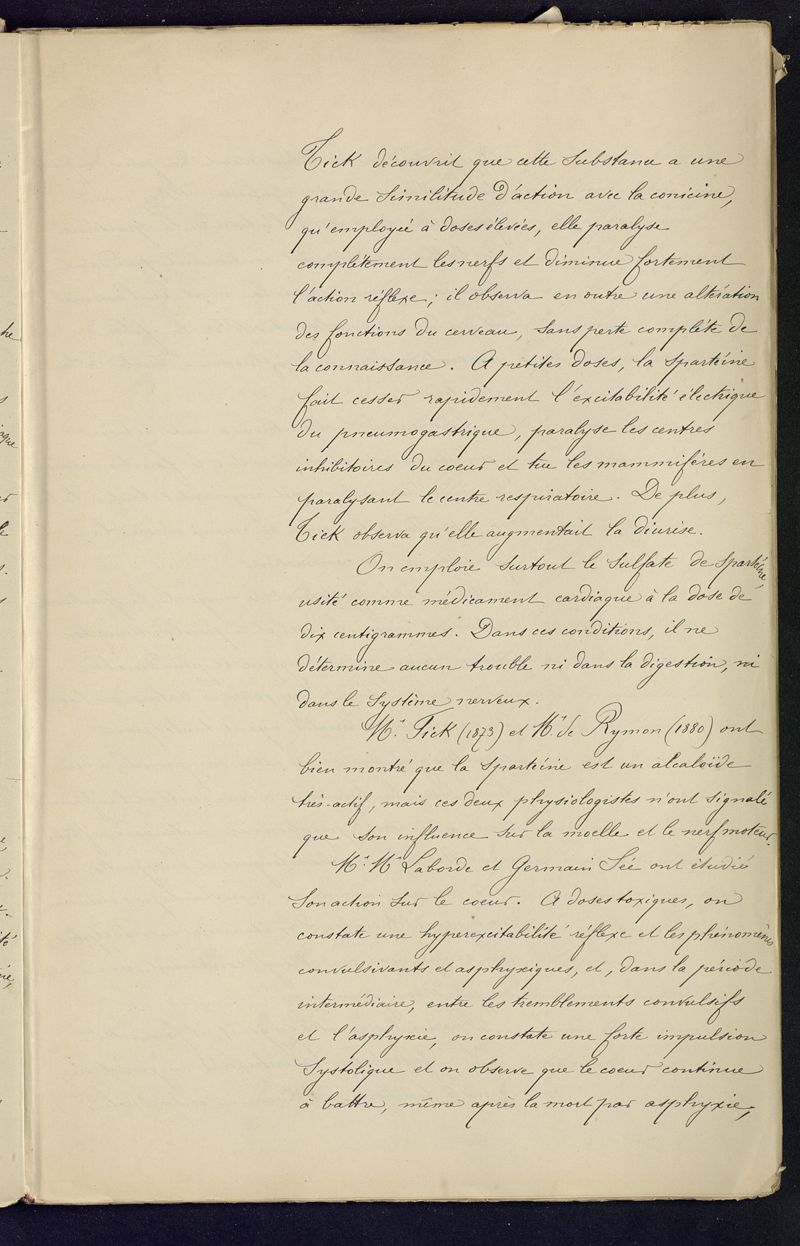 Fick découvrit que cette substance a une
grande similitude d'action avec la conicine,
qu'employée à doses élevées, elle paralyse
complètement les nerfs et diminue fortement
l'action réflexe; il observa en outre une altération
des fonctions du cerveau, sans perte complète de
la connaissance. A petites doses, la spartéine
fait cesser rapidement l'excitabilité électrique
du pneumogastrique, paralyse les centres
inhibitoires du coeur et tue les mammifères en
paralysant le centre respiratoire. De plus,
Fick observa qu'elle augmentait la diurèse.
On emploie surtout le sulfate de spartéine,
usité comme médicament cardiaque à la dose de
dix centigrammes. Dans ces conditions, il ne
détermine aucun trouble ni dans la digestion, ni
dans le système nerveux.
Mr. Fick (1873) et Mr. de Rymon (1880) ont
bien montré que la spartéine est un alcaloïde
très-actif, mais ces deux physiologistes n'ont signalé
que son influence sur la moelle et le nerf moteur.
Mr. Mr. Laborde et Germain Sée ont étudié
son action sur le coeur. A doses toxiques, on
constate une hyperexcitabilité réflexe et les phénomènes
convulsivants et asphyxiques, et, dans la période
intermédiaire, entre les tremblements convulsifs
et l'asphyxie, on constate une forte impulsion
systolique et on observe que le coeur continue
à battre, même après la mort par asphyxie,